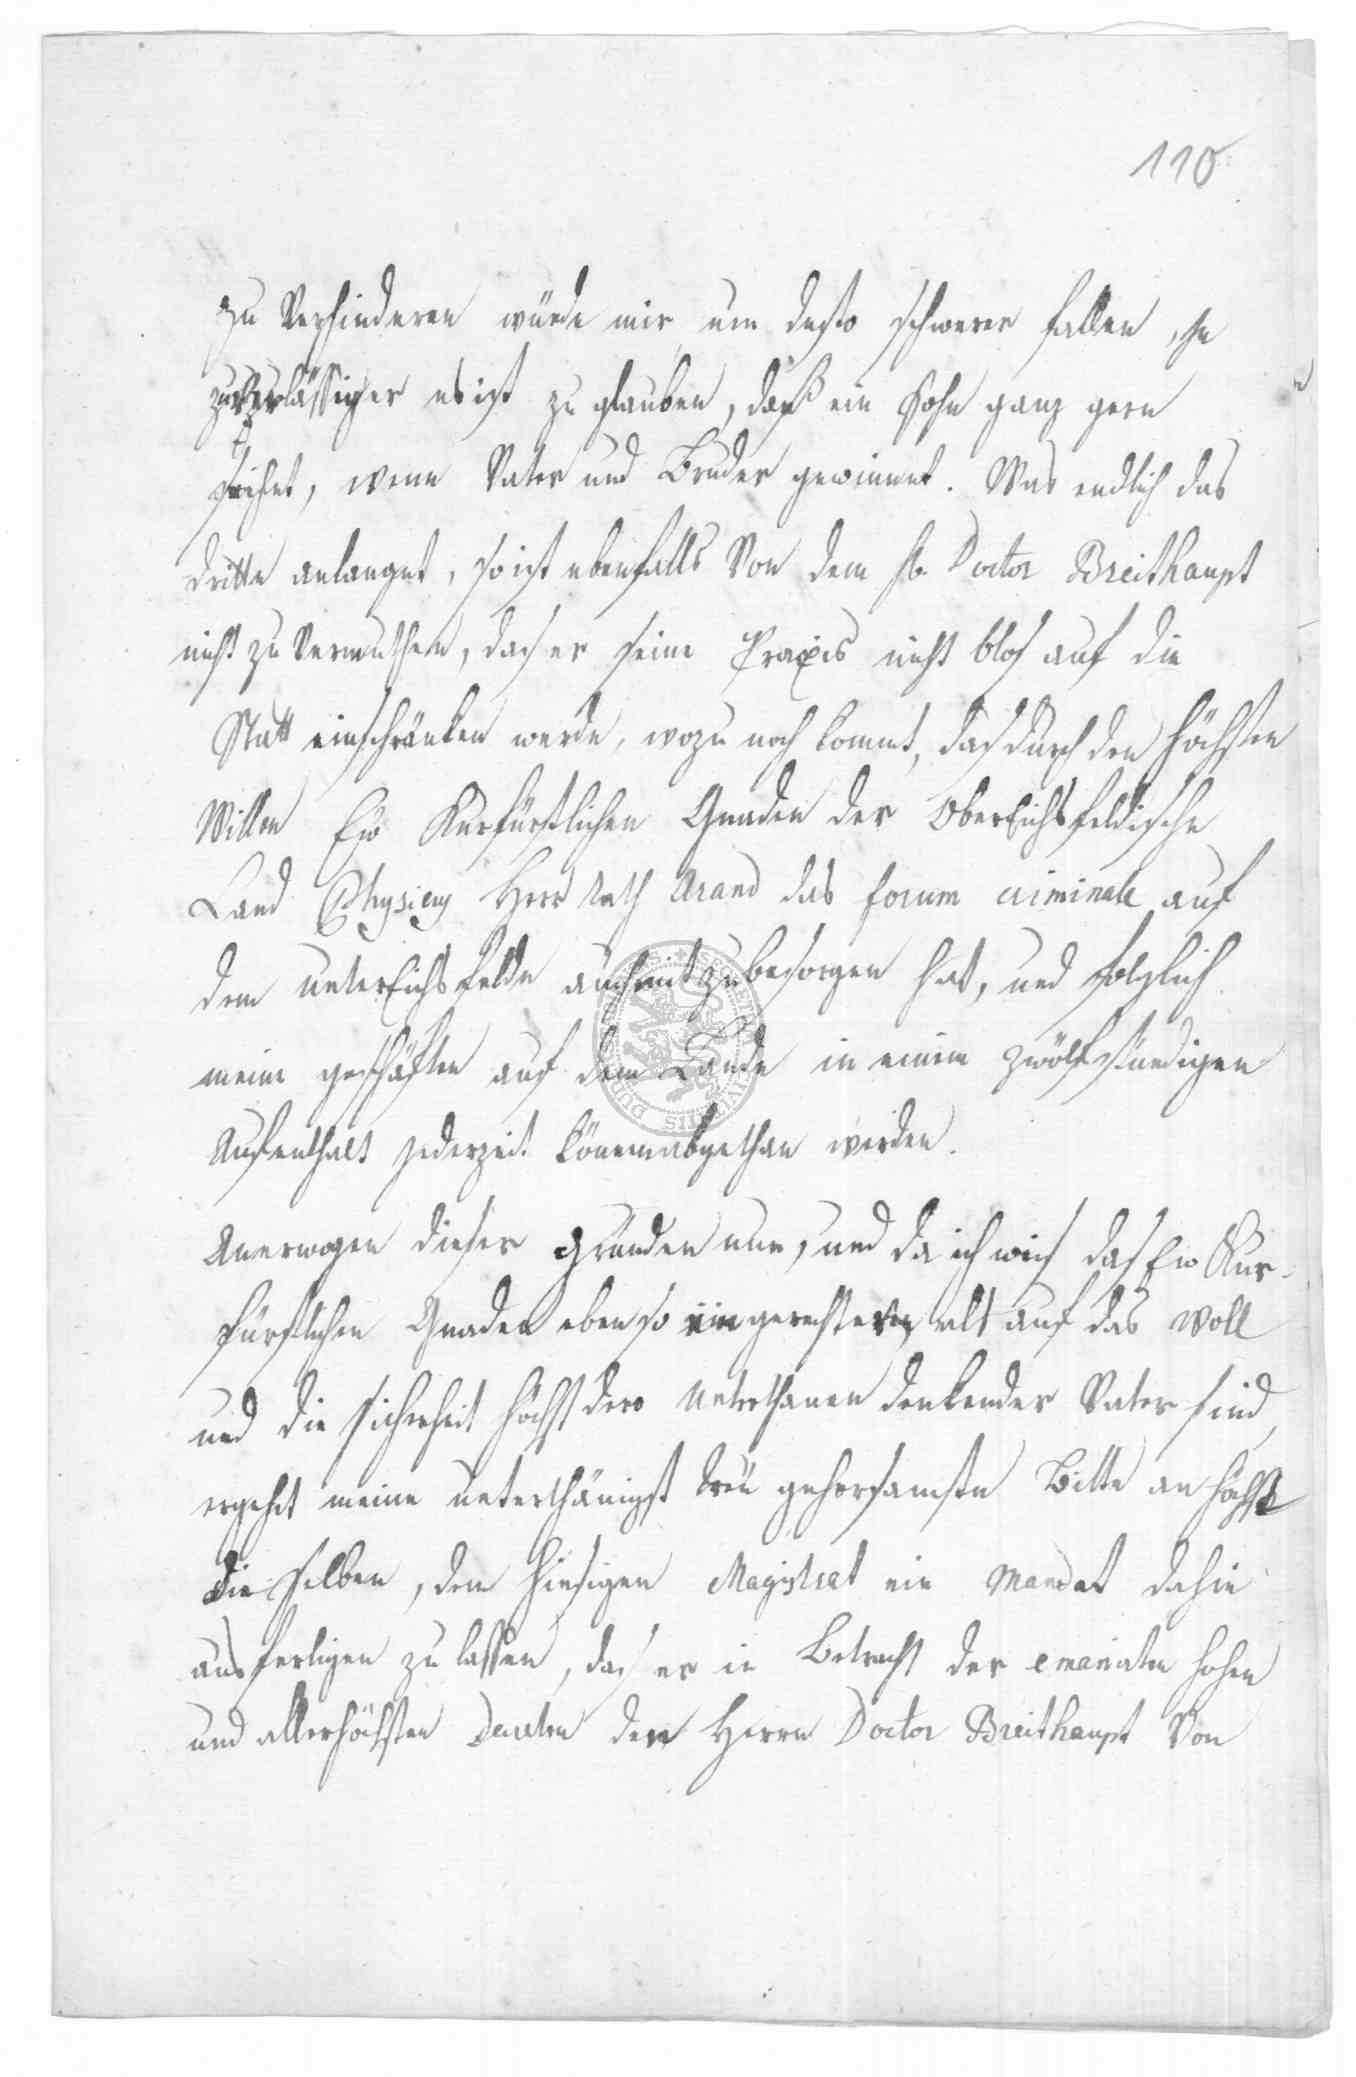 110
zu Verhinderen würde mir um desto schwerer fallen, je
zuverlässiger es ist zu glauben, daß ein Sohn ganz gern
siehet, wenn Vater und Bruder gewinnet. Was endlich das
dritte anlanget, so ist ebenfalls Von dem H. Doctor Breithaupt
nicht zu Vermuthen, das er seine Praxis nicht blos auf die
Statt einschränken werde, wozu noch komt, das durch den höchsten
Willen Ew Kurfürstlichen Gnaden der OberEichsfeldische
Land Physicus Herr Rath Arand das forum criminale auf
dem unterEichsfelde auch mit zu besorgen hat, und folglich
meine geschäften auf dem Lande in einem zwölfstündigen
Aufenthalt jederzeit können abgethan werden.
Anerwogen dieser Gründen nun, und da ich weis das Ew Kur-
fürstlichen Gnaden eben so ein gerechter, als auf das Woll
und die sicherheit höchst dero Unterthanen denkender Vater sind,
ergehet meine unterthänigst treu gehorsamste Bitte an höchst
die selben, dem hiesigen Magistrat ein Mandat dahin
ausfertigen zu lassen, das er in Betracht der emanirten hohen
und allerhöchsten Decreten den Herrn Doctor Breithaupt Von